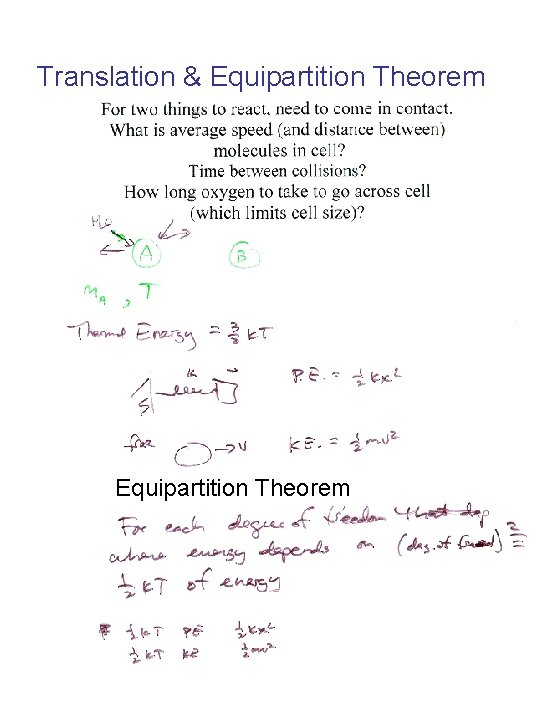 Translation & Equipartition Theorem
For two things to react, need to come in contact.
What is average speed (and distance between)
molecules in cell?
Time between collisions?
How long oxygen to take to go across cell
(which limits cell size)?
A B
M_A , T
Thermal Energy = 3/2 kT
k
P.E. = 1/2 kx²
free → v K.E. = 1/2 mv²
Equipartition Theorem
For each degree of freedom
where energy depends on (deg. of freed)²
1/2 kT of energy
1/2 kT PE 1/2 kx²
1/2 kT KE 1/2 mv²